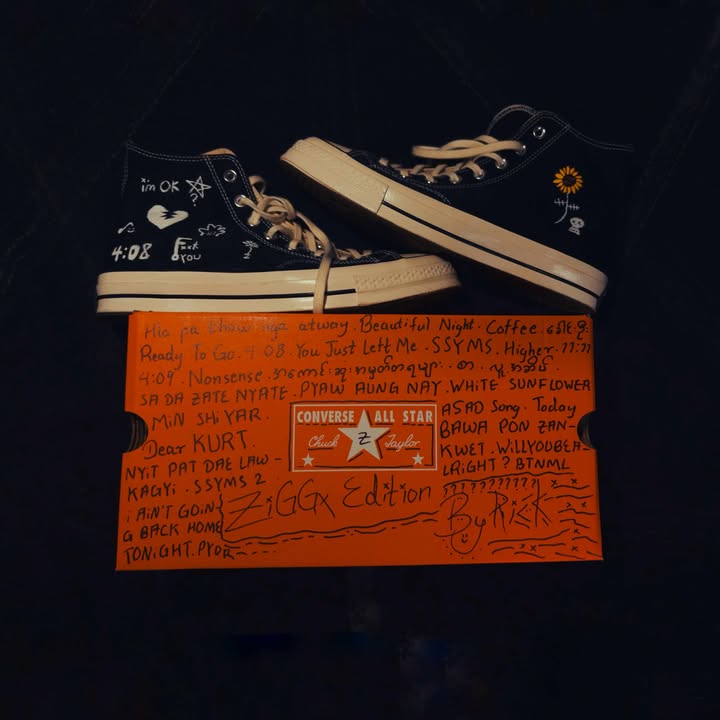 im OK
?
4:08
F**k
YOU
Hia pa khaw nga atway. Beautiful Night. Coffee.
Ready To Go. 4 08. You Just Left Me. SSYMS. Higher. ??:??
4:09. Nonsense.
SA DA ZATE NYATE. PYAW AUNG NAY. WHITE SUNFLOWER
MiN SHiYAR.
Dear KURT.
NYiT PAT DAE LAW-
KAGYi. SSYMS 2
i AiN'T GOiN
G BACK HOME
TONiGHT. PYOR
CONVERSE ALL STAR
Chuck Z Taylor
ASAD Song. Today
BAWA PON ZAN-
KWET. WiLLYOUBEA-
LRiGHT? BTNML
??????????
ZiGGx Edition
By RicK